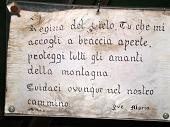 Regina del Cielo, Tu che mi
accogli a braccia aperte,
proteggi tutti gli amanti
della montagna.
Guidaci ovunque nel nostro
cammino. Ave Maria